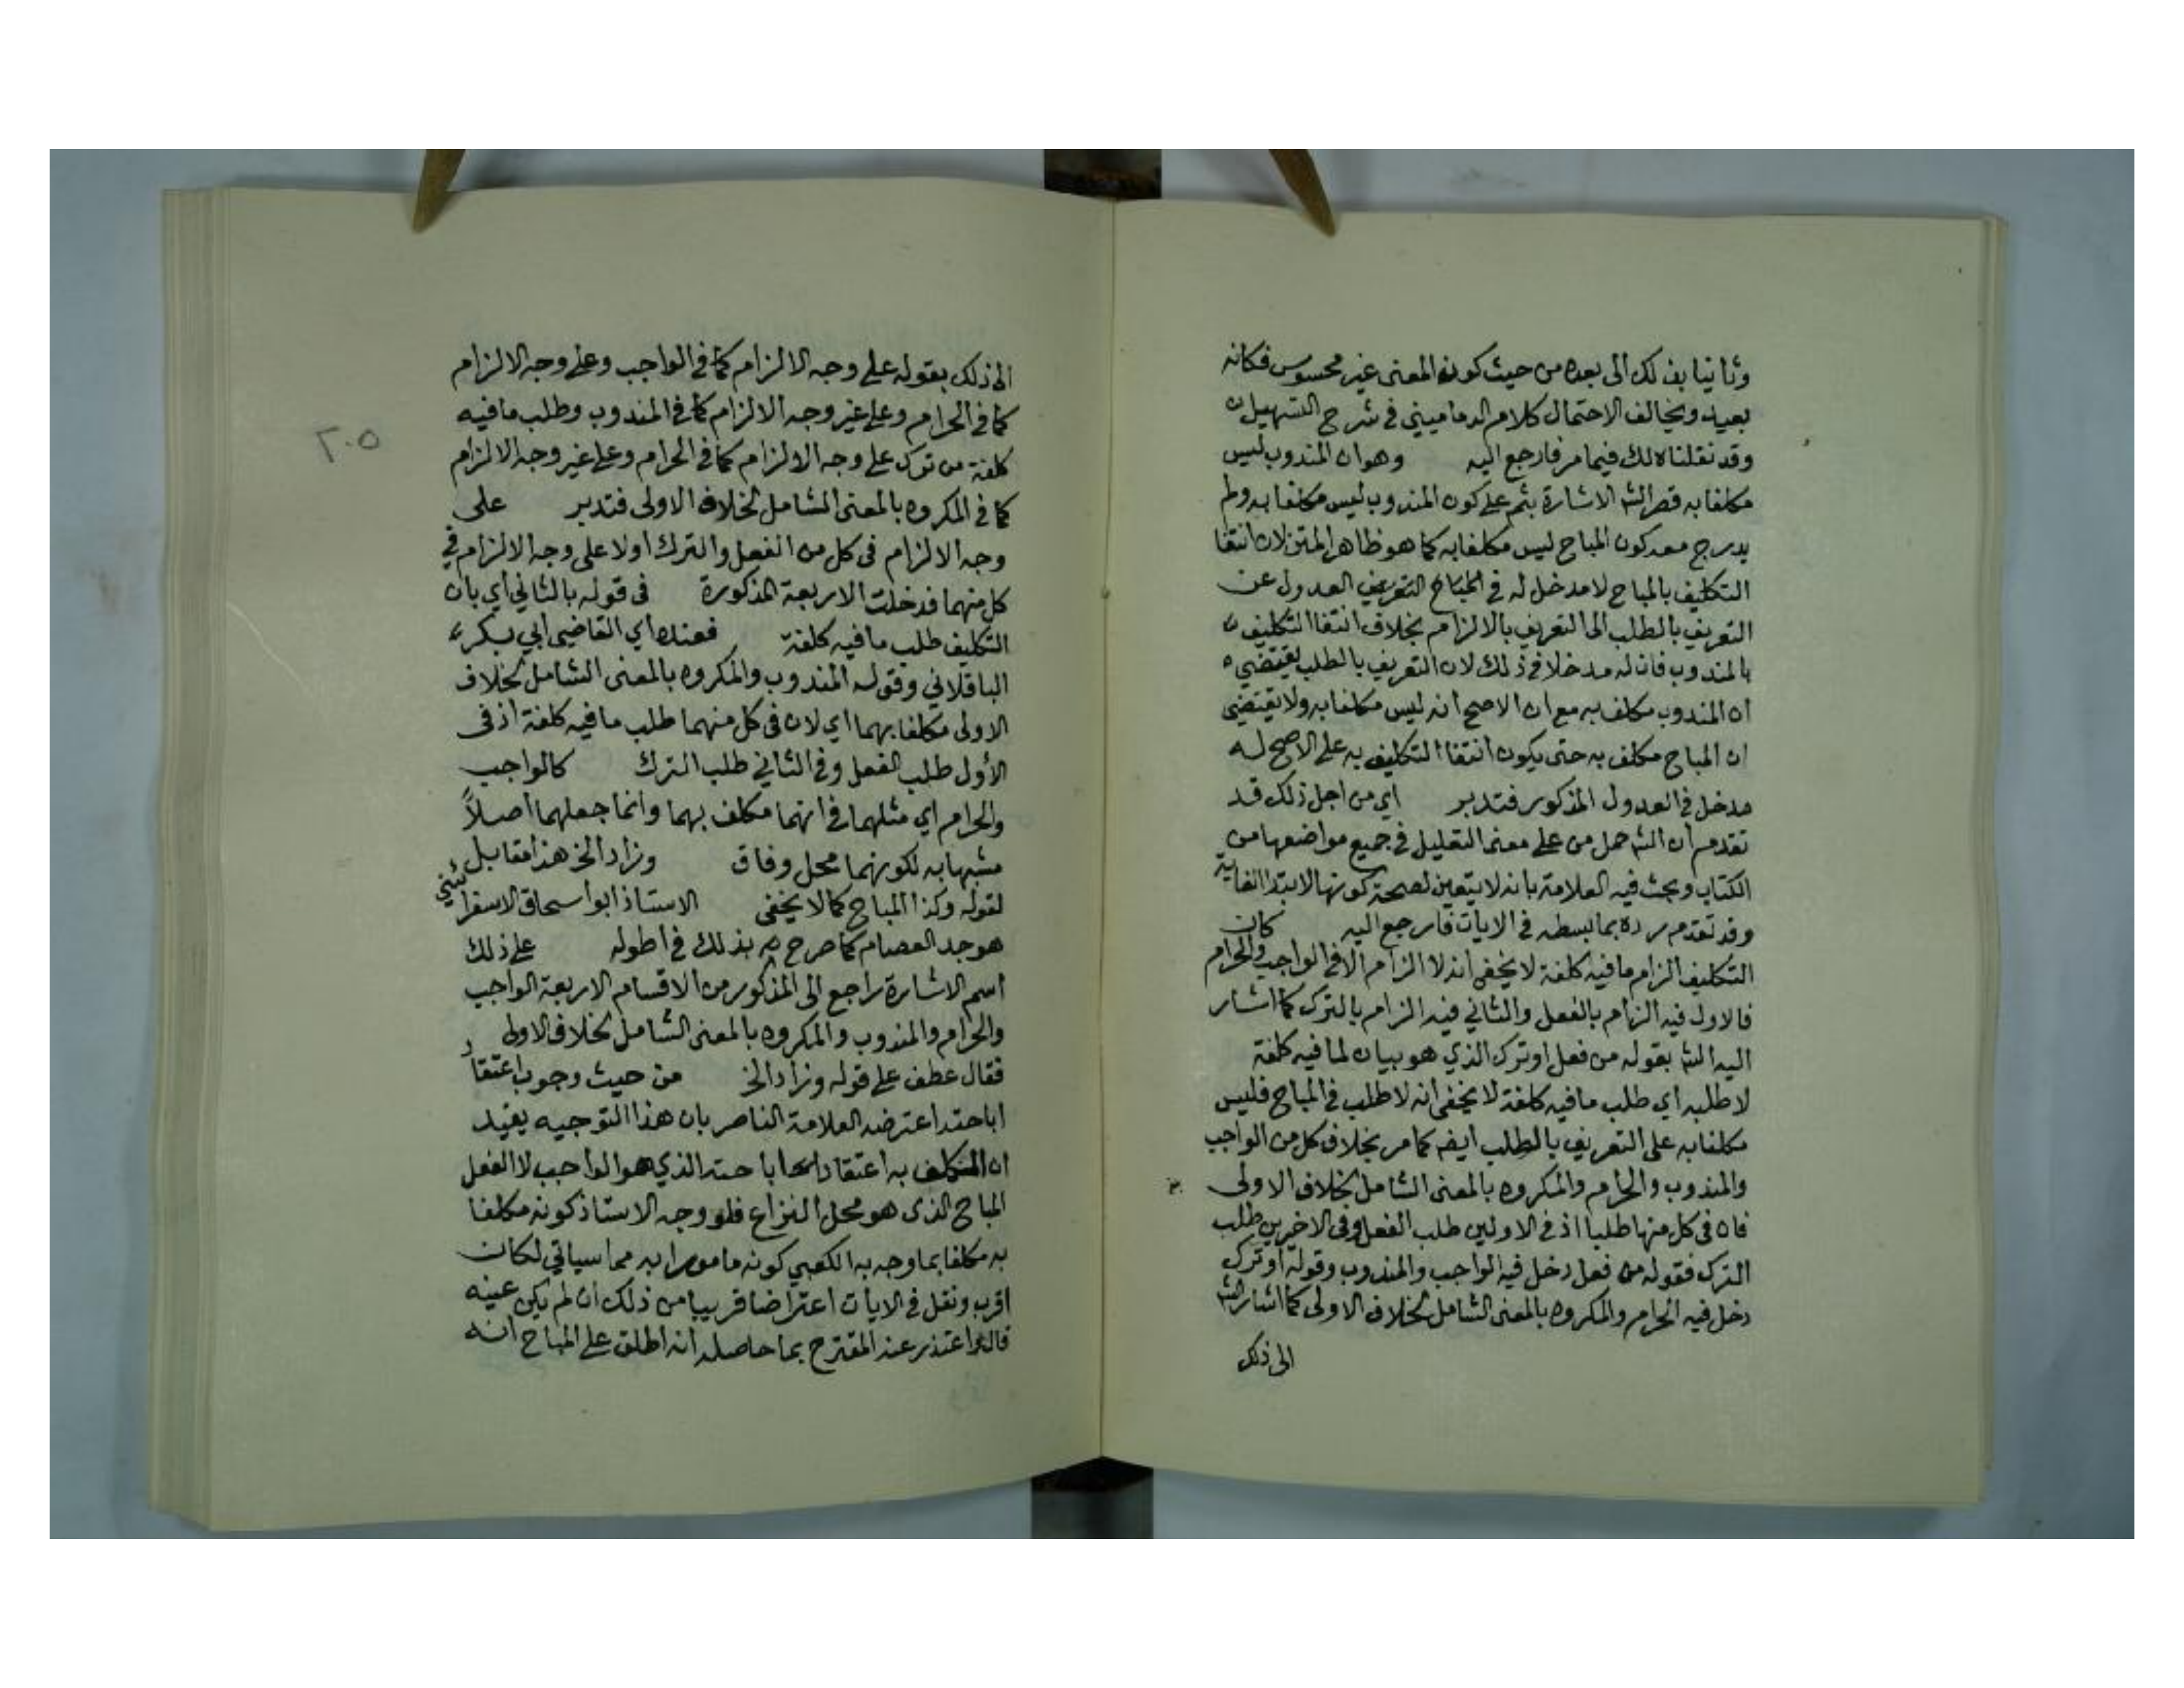 وثانيا بذلك الى بعده من حيث كونه المعنى غير محسوس فكانه
بعيد ويخالف الاحتمال كلام الدماميني في شرح التسهيل
وقد نقلناه لك فيما مر فارجع اليه وهو ان المندوب ليس
مكلفا به قصر الش الاشارة بثم على كون المندوب ليس مكلفا به ولم
يدرج معه كون المباح ليس مكلفا به كما هو ظاهر المتن لان انتفا
التكليف بالمباح لا مدخل له في التعريف العدول عن
التعريف بالطلب الى التعريف بالالزام بخلاف انتفا التكليف
بالمندوب فان له مدخلا في ذلك لان التعريف بالطلب يقتضي
ان المندوب مكلف به مع ان الاصح انه ليس مكلفا به ولا يقتضي
ان المباح مكلف به حتى يكون انتفا التكليف به على الاصح له
مدخل في العدول المذكور فتدبر اي من اجل ذلك قد
تقدم ان الش حمل من على معنى التعليل في جميع مواضعها من
الكتاب وبحث فيه العلامة بانه لا يتعين لصحة كونها لابتدا الغاية
وقد تقدم رده بما بسطه في الايات فارجع اليه كان
التكليف الزام ما فيه كلفة لا يخفى انه لا الزام الا في الواجب والحرام
فالاول فيه الزام بالفعل والثاني فيه الزام بالترك كما اشار
اليه الش بقوله من فعل او ترك الذي هو بيان لما فيه كلفة
لا طلبه اي طلب ما فيه كلفة لا يخفى انه لا طلب في المباح فليس
مكلفا به على التعريف بالطلب ايضه كما مر بخلاف كل من الواجب
والمندوب والحرام والمكروه بالمعنى الشامل لخلاف الاولى
فان في كل منها طلبا اذ في الاولين طلب الفعل وفي الاخيرين طلب
الترك فقوله من فعل دخل فيه الواجب والمندوب وقوله او ترك
دخل فيه الحرام والمكروه بالمعنى الشامل لخلاف الاولى كما اشار الش
الى ذلك
٢٠٥
الى ذلك بقوله على وجه الالزام كما في الواجب وعلى وجه الالزام
كما في الحرام وعلى غير وجه الالزام كما في المندوب وطلب ما فيه
كلفة من ترك على وجه الالزام كما في الحرام وعلى غير وجه الالزام
كما في المكروه بالمعنى الشامل لخلاف الاولى فتدبر على
وجه الالزام في كل من الفعل والترك اولا على وجه الالزام في
كل منهما فدخلت الاربعة المذكورة في قوله بالثاني اي بان
التكليف طلب ما فيه كلفة فعنده اي القاضي ابي بكر
الباقلاني وقوله المندوب والمكروه بالمعنى الشامل لخلاف
الاولى مكلفا بهما اي لان في كل منهما طلب ما فيه كلفة اذ في
الأول طلب الفعل وفي الثاني طلب الترك كالواجب
والحرام اي مثلهما في انهما مكلف بهما وانما جعلهما اصلاً
مشبها به لكونهما محل وفاق وزاد الخ هذا مقابل
لقوله وكذا المباح كما لا يخفى الاستاذ ابو اسحاق الاسفرائيني
هو جد العصام كما صرح به بذلك في اطوله على ذلك
اسم الاشارة راجع الى المذكور من الاقسام الاربعة الواجب
والحرام والمندوب والمكروه بالمعنى الشامل لخلاف الاولى
فقال عطف على قوله وزاد الخ من حيث وجوب اعتقاد
اباحته اعترضه العلامة الناصر بان هذا التوجيه يفيد
ان المكلف به اعتقاد اباحته الذي هو الواجب لا الفعل
المباح الذي هو محل النزاع فلو وجه الاستاذ كونه مكلفا
به مكلفا بما وجه به الكعبي كونه مامورا به مما سياتي لكان
اقرب ونقل في الايات اعتراضا قريبا من ذلك ان لم يكن عينه
قال واعتذر عنه المقترح بما حاصله انه اطلق على المباح انه